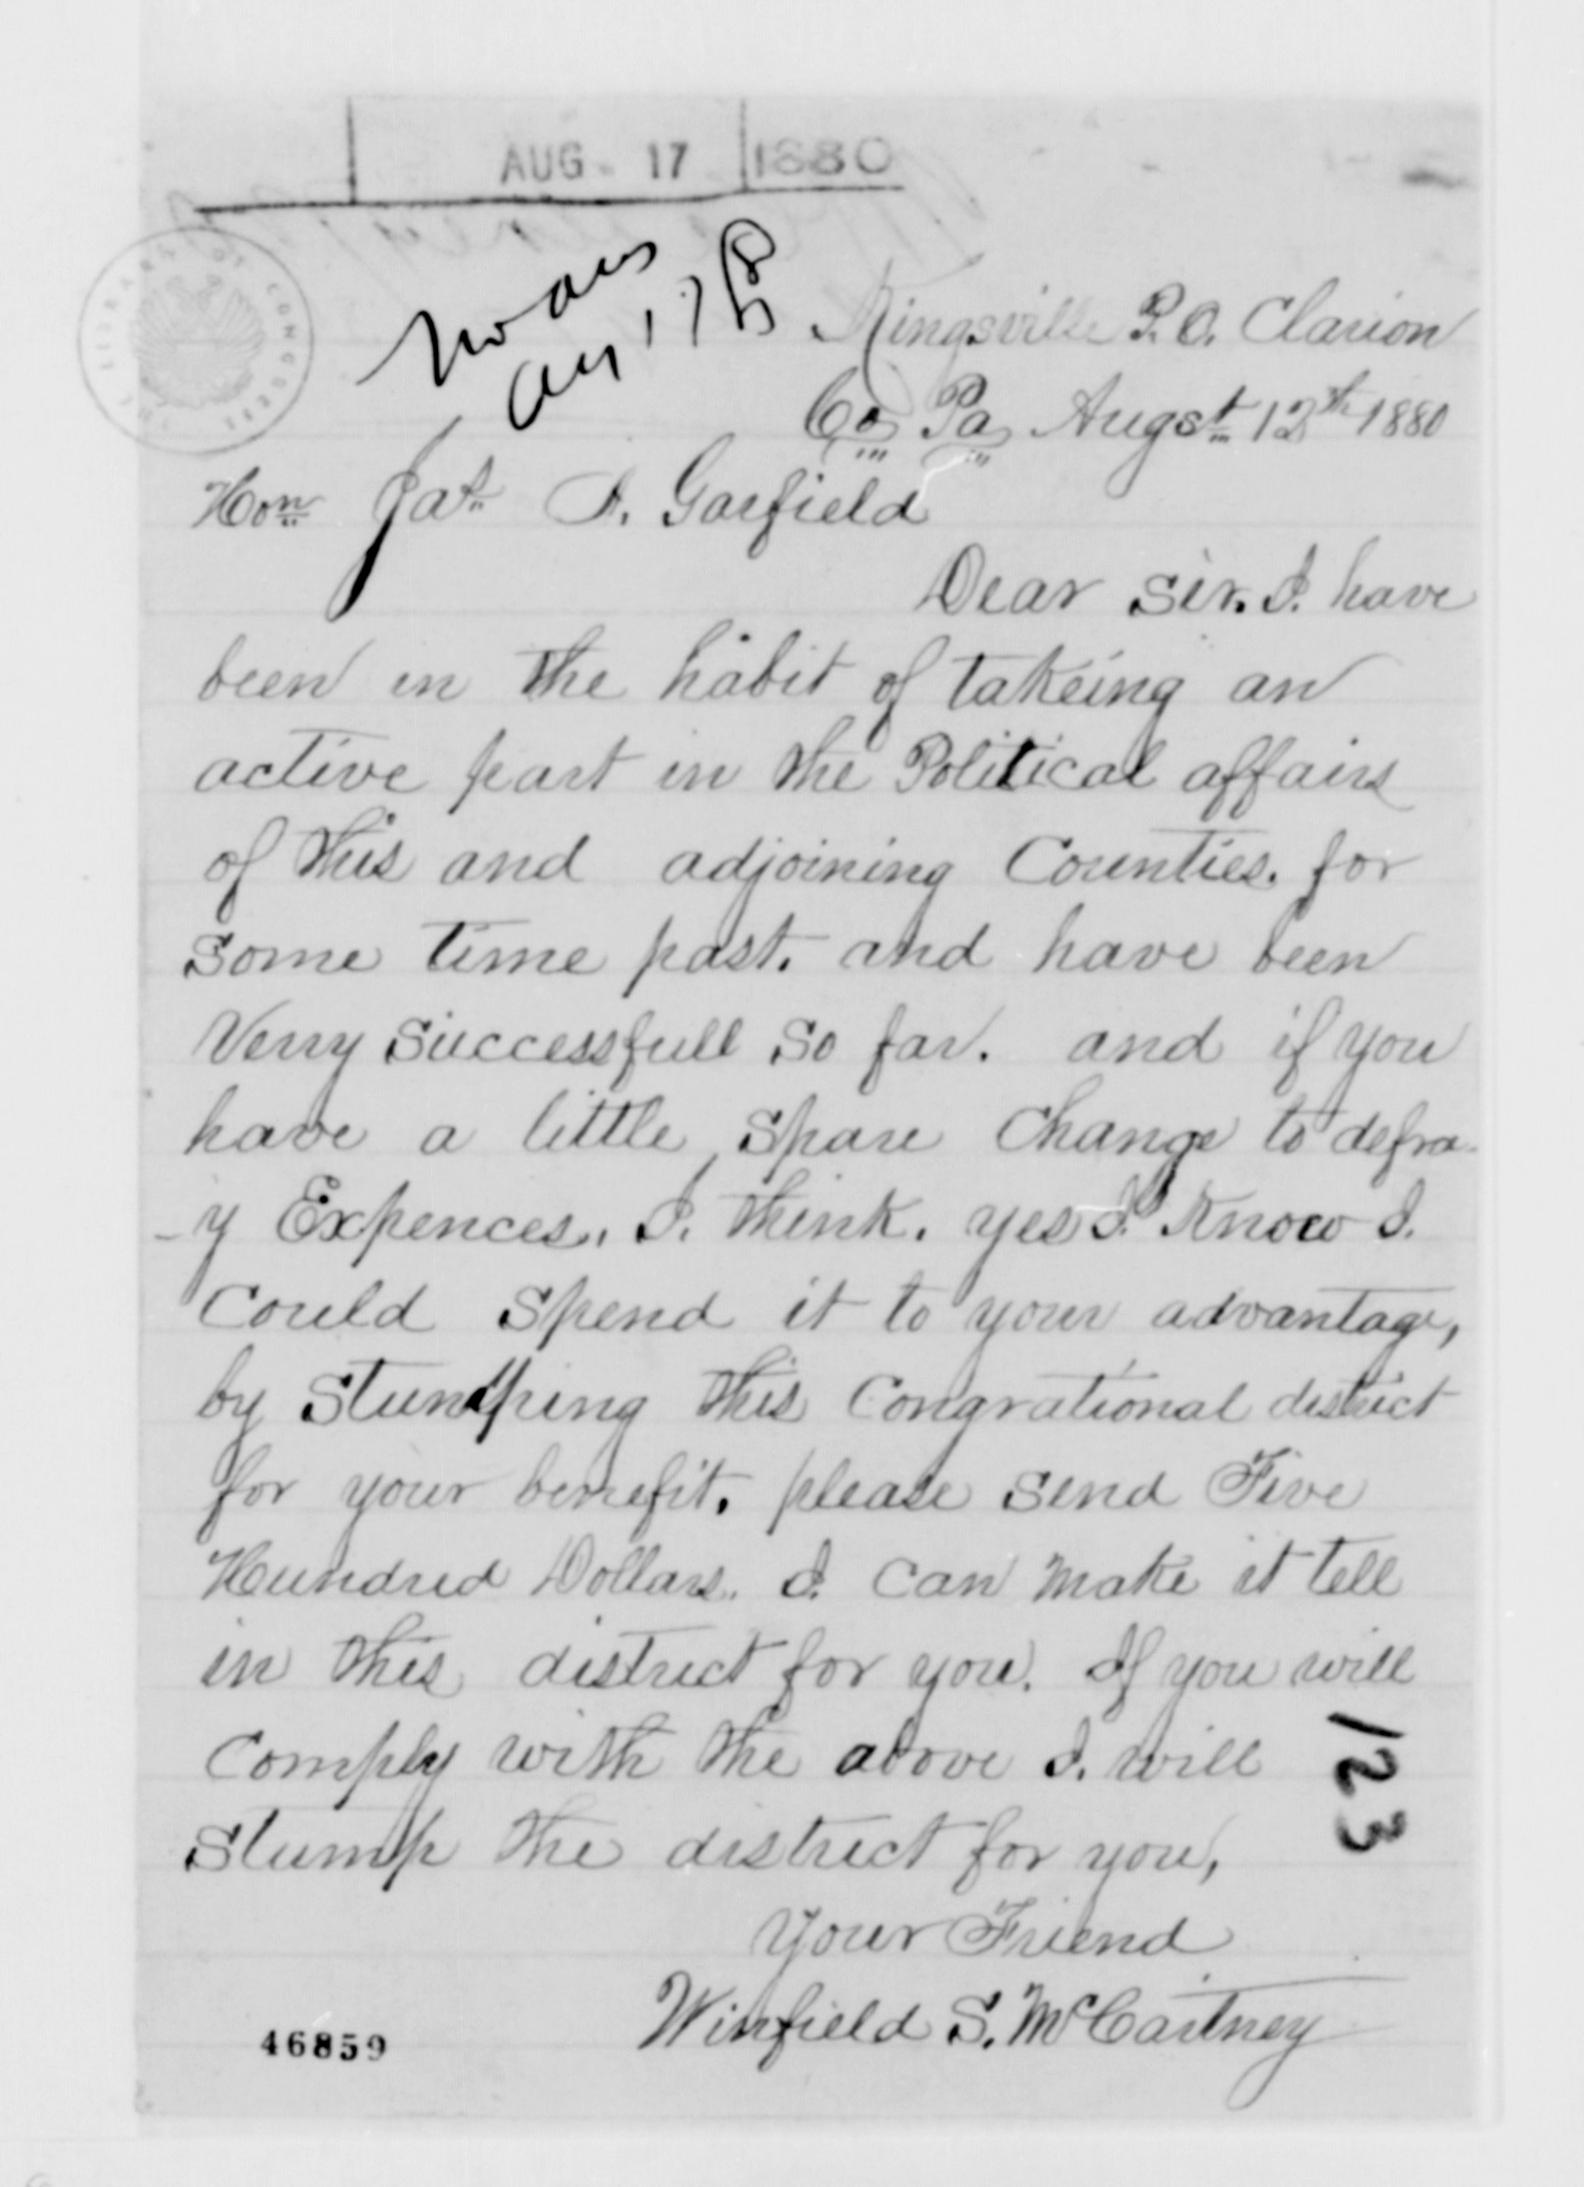 AUG 17 1880
no ans
Aug 17th
Kingsville P.O. Clarion
Co Pa Augst 12th 1880
Hon Jas A. Garfield
Dear Sir. I. have
been in the habit of takeing an
active part in the Political affairs
of this and adjoining Counties. for
Some time past. and have been
Verry Successfull So far. and if you
have a little Spare Change to defra-
-y Expences. I. think. yes I. Know I.
Could Spend it to your advantage,
by Stumping this Congrational district
for your benefit. please Send Five
Hundred Dollars. I. Can Make it tell
in this district for you. If you will
Comply with the above I. will
Stump the district for you,
Your Friend
Winfield S. McCartney
123
46859